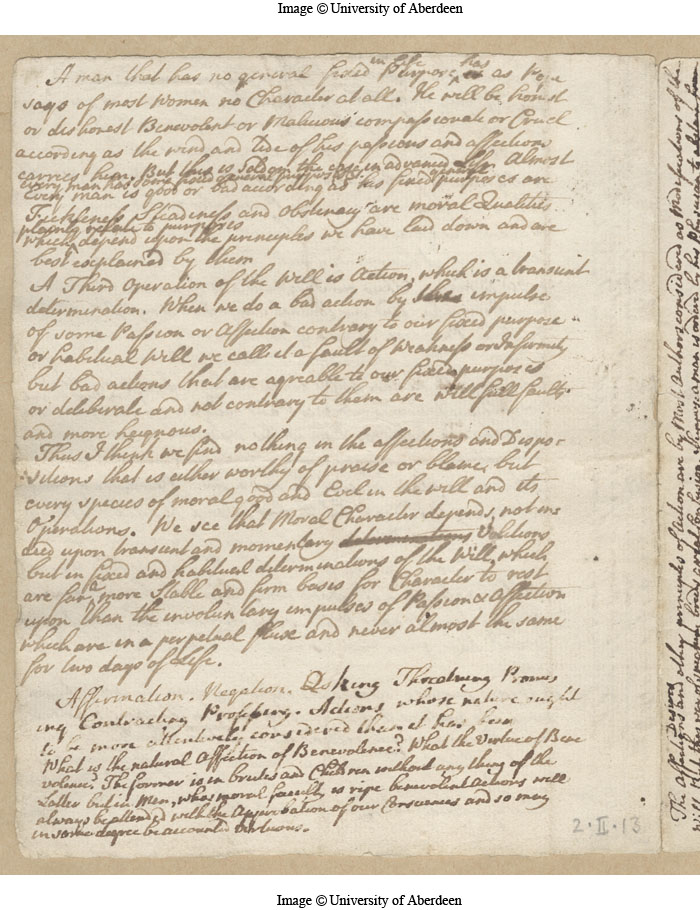 Image © University of Aberdeen
A man that has no general fixed in life Purpose has as Pope
says of most Women no Character at all. He will be honest
or dishonest Benevolent or Malicious compassionate or Cruel
according as the wind and tide of his passions and affections
carries him. But this is seldom the case in advanced Life. Almost
every man has some fixed general purposes
Every man is good or bad according as his fixed general purposes are
Fickleness Steadiness and obstinacy are moral Qualities
plainly relate to purposes
which depend upon the principles we have laid down and are
best explained by them
A Third Operation of the Will is Action, which is a transient
determination. When we do a bad action by impulse
of some Passion or Affection contrary to our fixed purpose
or habitual Will we call it a fault of Weakness or Infirmity
but bad actions that are agreable to our fixed purposes
or deliberate and not contrary to them are willfull faults
and more heignous.
Thus I think we find nothing in the affections and Dispo=
sitions that is either worthy of praise or blame, but
every species of moral good and Evil in the will and its
Operations. We see that Moral Character depends, not in=
deed upon transient and momentary determinations Volitions
but in fixed and habitual determinations of the Will, which
are far a more Stable and firm basis for Character to rest
upon than the involuntary impulses of Passion & Affection
which are in a perpetual fluxe and never almost the same
for two days of Life.
Affirmation. Negation. Asking Threatning Promis
ing Contracting. Actions whose nature ought
to be more attentively considered than it has been
What is the natural Affection of Benevolence? What the Virtue of Bene
volence? The former is in brutes and Children without any thing of the
Latter but in Men, whos moral faculty is ripe benevolent Actions will
always be attended with the Approbation of our Consciences and so may
in some degree be accounted Virtuous.
2·II·13
Desires
The Affections and other principles of Action are by Most Authors considered as Modifications of the
Will
Image © University of Aberdeen